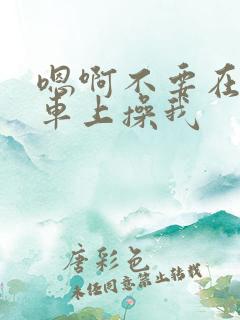 嗯啊不要在
车上操我
唐彩色
未经同意禁止转载